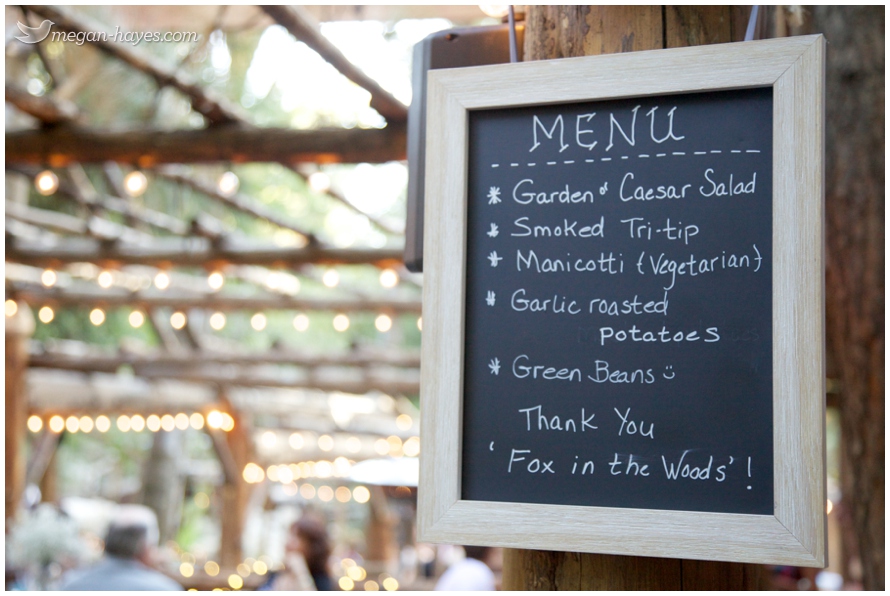 megan-hayes.com
MENU
* Garden & Caesar Salad
* Smoked Tri-tip
* Manicotti {Vegetarian}
* Garlic roasted
potatoes
* Green Beans :)
Thank You
'Fox in the Woods'!